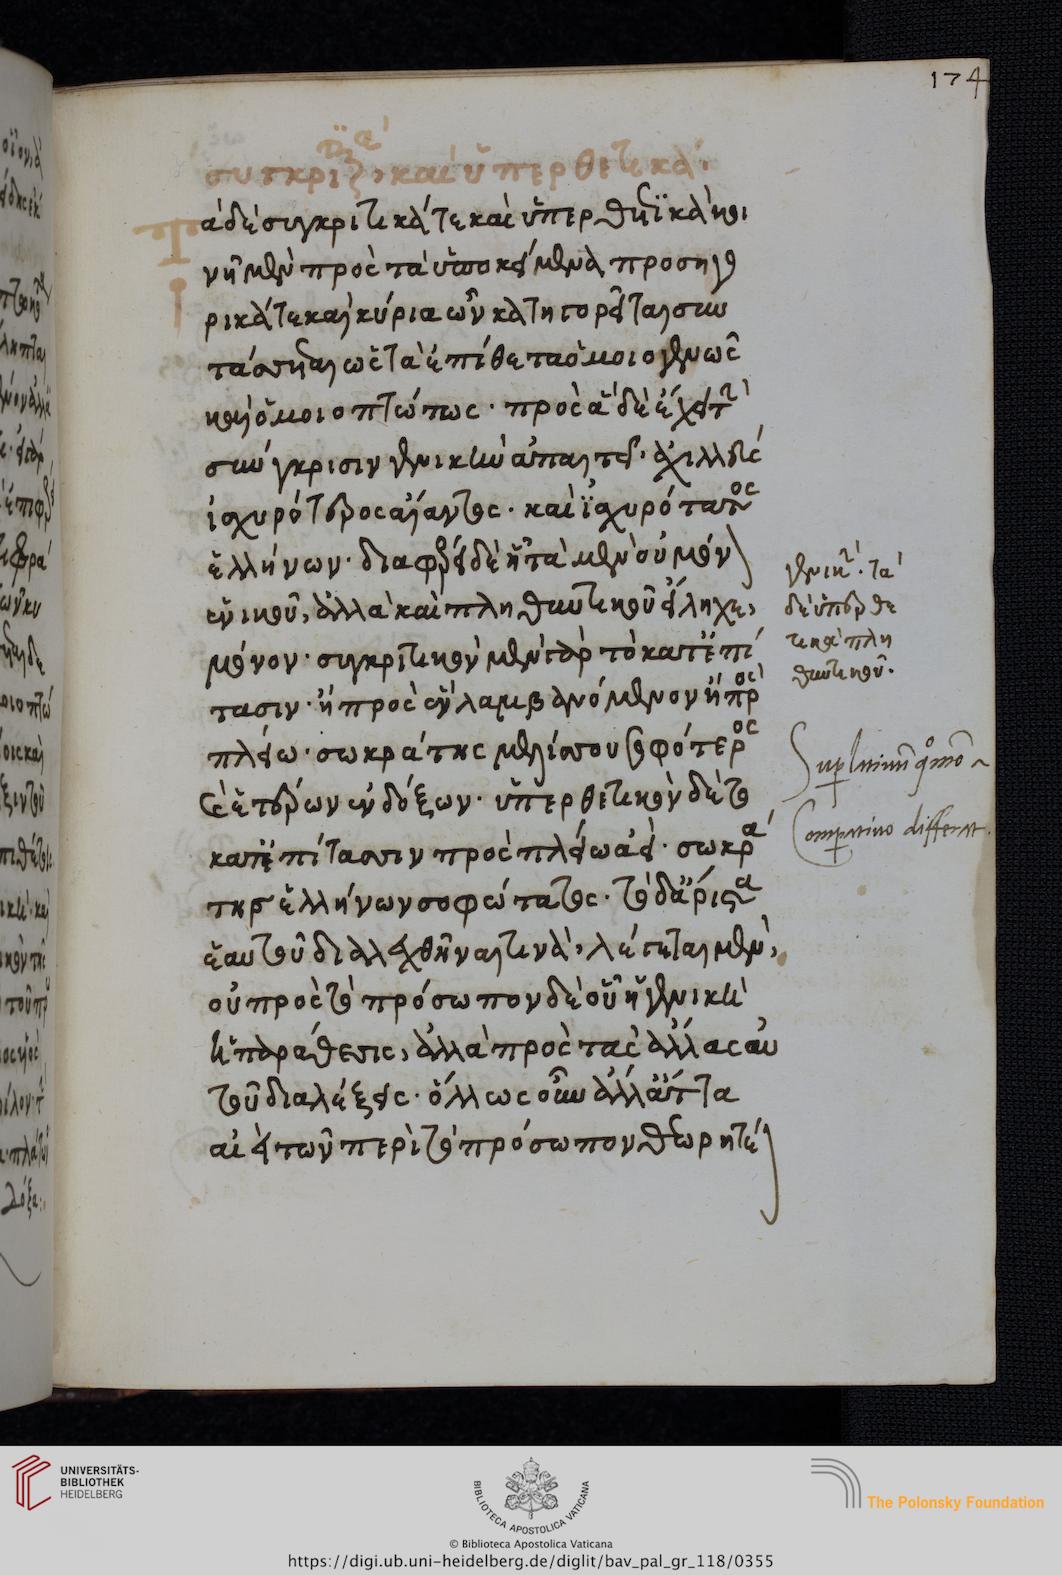 174
συγκριτικὰ καὶ ὑπερθετικά.
Τὰ δὲ συγκριτικά τε καὶ ὑπερθετικὰ κοι
νῇ μὲν πρὸς τὰ ὑποκείμενα προσηγο
ρικά τε καὶ κύρια ὧν κατηγορεῖται συν
τάσσεται ὡς τὰ ἐπίθετα ὁμοιογενῶς
καὶ ὁμοιοπτώτως. πρὸς ἃ δὲ ἔχει τὴν
σύγκρισιν γενικὴν ἀπαιτεῖ. ἀχιλλεὺς
ἰσχυρότερος αἴαντος. καὶ ἰσχυρότατος
ἑλλήνων. διαφέρει δὲ ᾗ τὰ μὲν οὐ μόν
ἑνικοῦ, ἀλλὰ καὶ πληθυντικοῦ εἴληχε,
μόνον. συγκριτικὸν μὲν γὰρ τὸ κατ' ἐπί
τασιν. ἢ πρὸς ἓν λαμβανόμενον ἢ πρὸς
πλείω. σωκράτης μελίσσου σοφώτερος
καὶ ἑτέρων ἐνδόξων. ὑπερθετικὸν δὲ τὸ
κατ' ἐπίτασιν πρὸς πλείω ἀεί. σωκρά
της ἑλλήνων σοφώτατος. τὸ δ' ἄριστα
ἑαυτοῦ διαλεχθῆναι τινὰ, λέγεται μὲν,
οὐ πρὸς τὸ πρόσωπον δὲ οὗ ἡ γενικὴ
ἡ παράθεσις, ἀλλὰ πρὸς τὰς ἄλλας αὐ
τοῦ διαλέξεις. ὅλως οὖν ἀλλ' ἄττα
ἀεὶ τῶν περὶ τὸ πρόσωπον θεωρητέ
γενικὴν. τὰ
δὲ ὑπερθε
τικὰ πλη
θυντικοῦ.
Suplatiuū quomō
Comparatiuo differat.
UNIVERSITÄTS-
BIBLIOTHEK
HEIDELBERG
BIBLIOTECA APOSTOLICA VATICANA
The Polonsky Foundation
© Biblioteca Apostolica Vaticana
https://digi.ub.uni-heidelberg.de/diglit/bav_pal_gr_118/0355